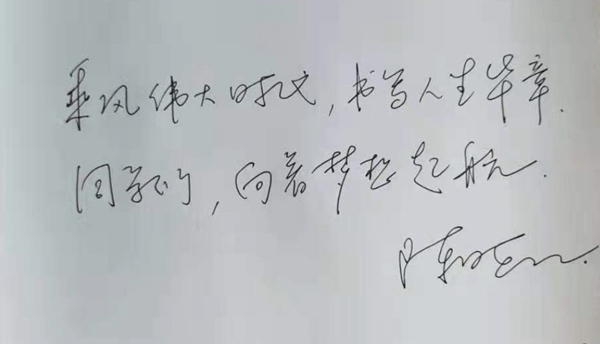 乘风伟大时代,书写人生华章.
同学们,向着梦想起航.
陈